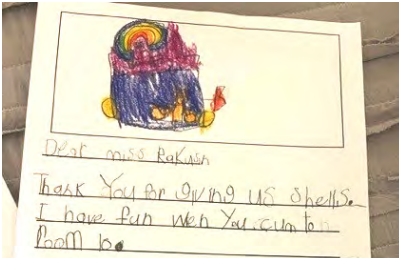 Dear miss Rakusin
Thask You for giving us shells.
I have fun wen You cum to
Room 10.